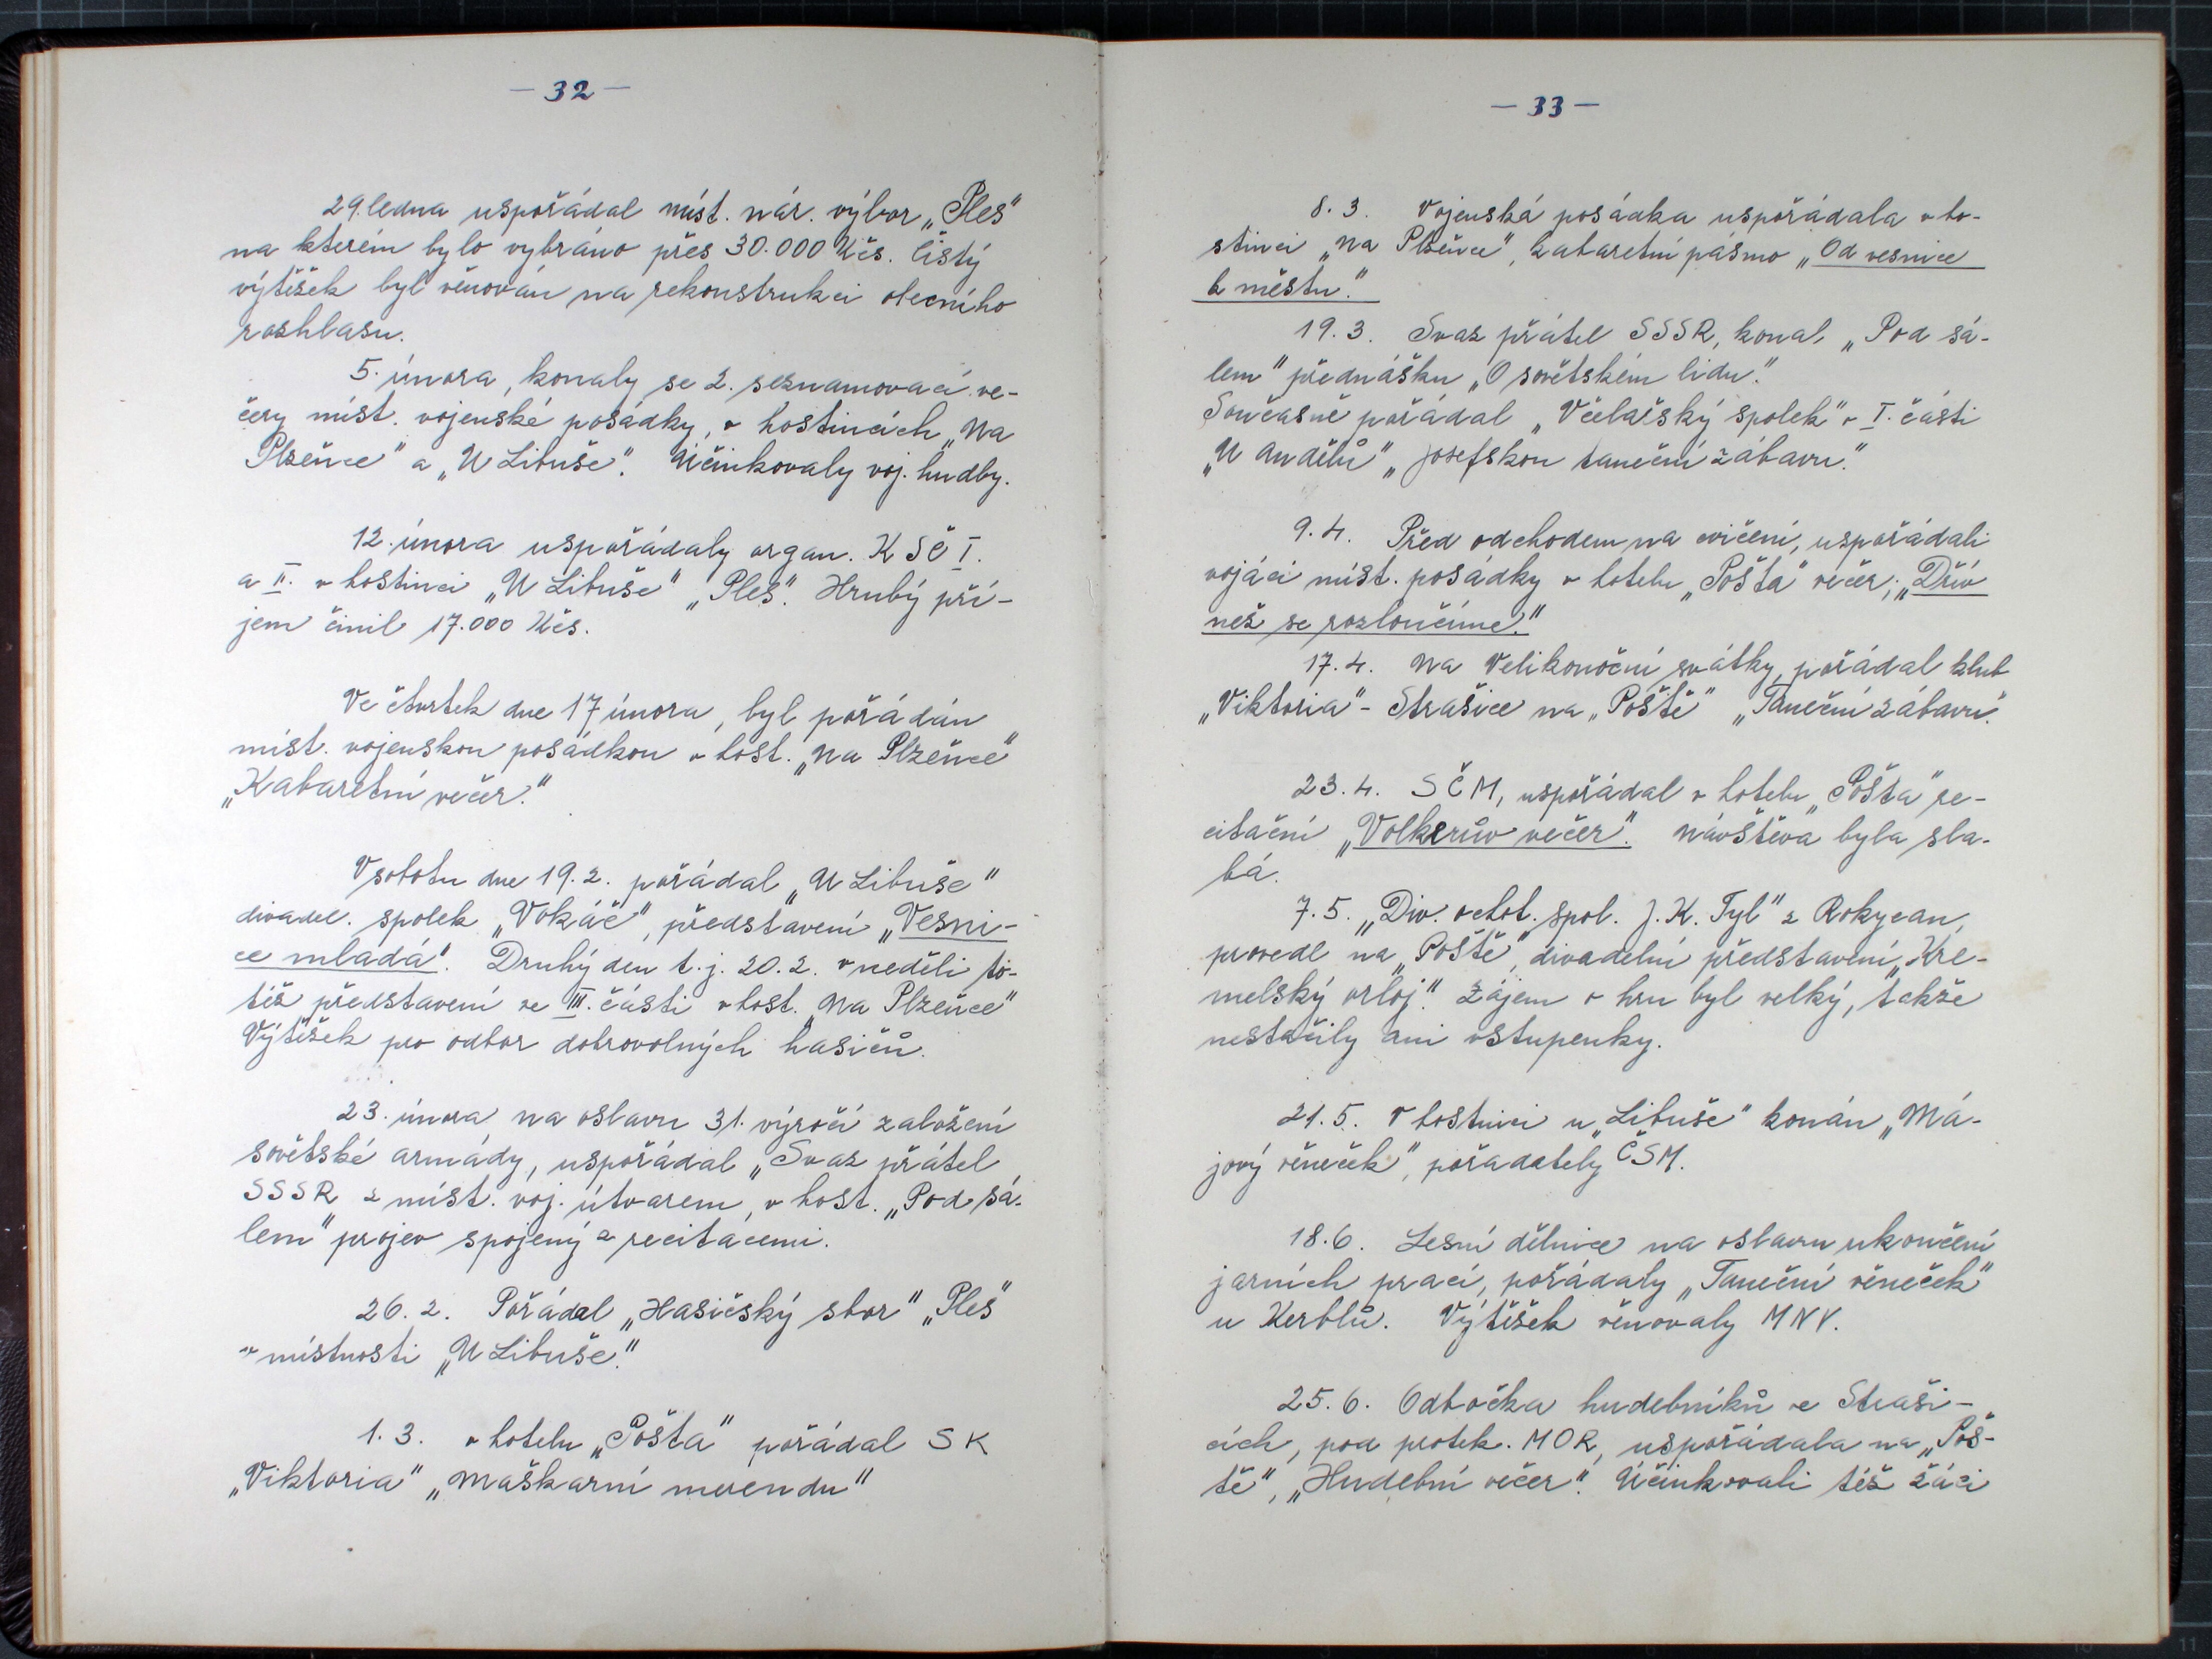 — 32 —
29. ledna uspořádal míst. nár. výbor „Ples"
na kterém bylo vybráno přes 30.000 Kčs. Čistý
výtěžek byl věnován na rekonstrukci obecního
rozhlasu.
5. února, konaly se 2. seznamovací ve-
čery míst. vojenské posádky, v hostincích „Na
Plzeňce" a „U Libuše". Účinkovaly voj. hudby.
12. února uspořádaly organ. KSČ I.
a II. v hostinci „U Libuše" „Ples". Hrubý pří-
jem činil 17.000 Kčs.
Ve čtvrtek dne 17 února, byl pořádán
míst. vojenskou posádkou v host. „Na Plzeňce"
„Kabaretní večer."
V sobotu dne 19.2. pořádal „U Libuše"
divadel. spolek „Vokáč", představení „Vesni-
ce mladá". Druhý den t.j. 20.2. v neděli to-
též představení ve III. části v host. „Na Plzeňce"
Výtěžek pro odbor dobrovolných hasičů.
23. února na oslavu 31. výročí založení
sovětské armády, uspořádal „Svaz přátel
SSSR s míst. voj. útvarem, v host. „Pod sá-
lem" projev spojený s recitacemi.
26. 2. Pořádal „Hasičský sbor" „Ples"
v místnosti „U Libuše."
1. 3. v hotelu „Pošta" pořádal SK
„Viktoria" „Maškarní merendu"
— 33 —
8. 3. Vojenská posádka uspořádala v ho-
stinci „Na Plzeňce", kabaretní pásmo „Od vesnice
k městu."
19. 3. Svaz přátel SSSR, konal, „Pod sá-
lem" přednášku „O sovětském lidu."
Současně pořádal „Včelařský spolek" v I. části
„U Andělů" „Josefskou taneční zábavu."
9. 4. Před odchodem na cvičení, uspořádali
vojáci míst. posádky v hotelu „Pošta" večer; „Dřív
než se rozloučíme."
17. 4. Na Velikonoční svátky, pořádal klub
„Viktoria" - Strašice na „Poště" „Taneční zábavu".
23. 4. SČM, uspořádal v hotelu „Pošta" re-
citační „Volkerův večer". Návštěva byla sla-
bá.
7. 5. „Div. ochot. spol. J. K. Tyl" z Rokycan,
provedl na „Poště", divadelní představení „Kre-
melský orloj." Zájem o hru byl velký, takže
nestačily ani vstupenky.
21. 5. V hostinci u „Libuše" konán „Má-
jový věneček", pořadately ČSM.
18. 6. Lesní dělnice na oslavu ukončení
jarních prací, pořádaly „Taneční věneček"
u Kerblů. Výtěžek věnovaly MNV.
25. 6. Odbočka hudebníků ve Straši-
cích, pod protek. MOR, uspořádala na „Poš-
tě", „Hudební večer". Účinkovali též žáci